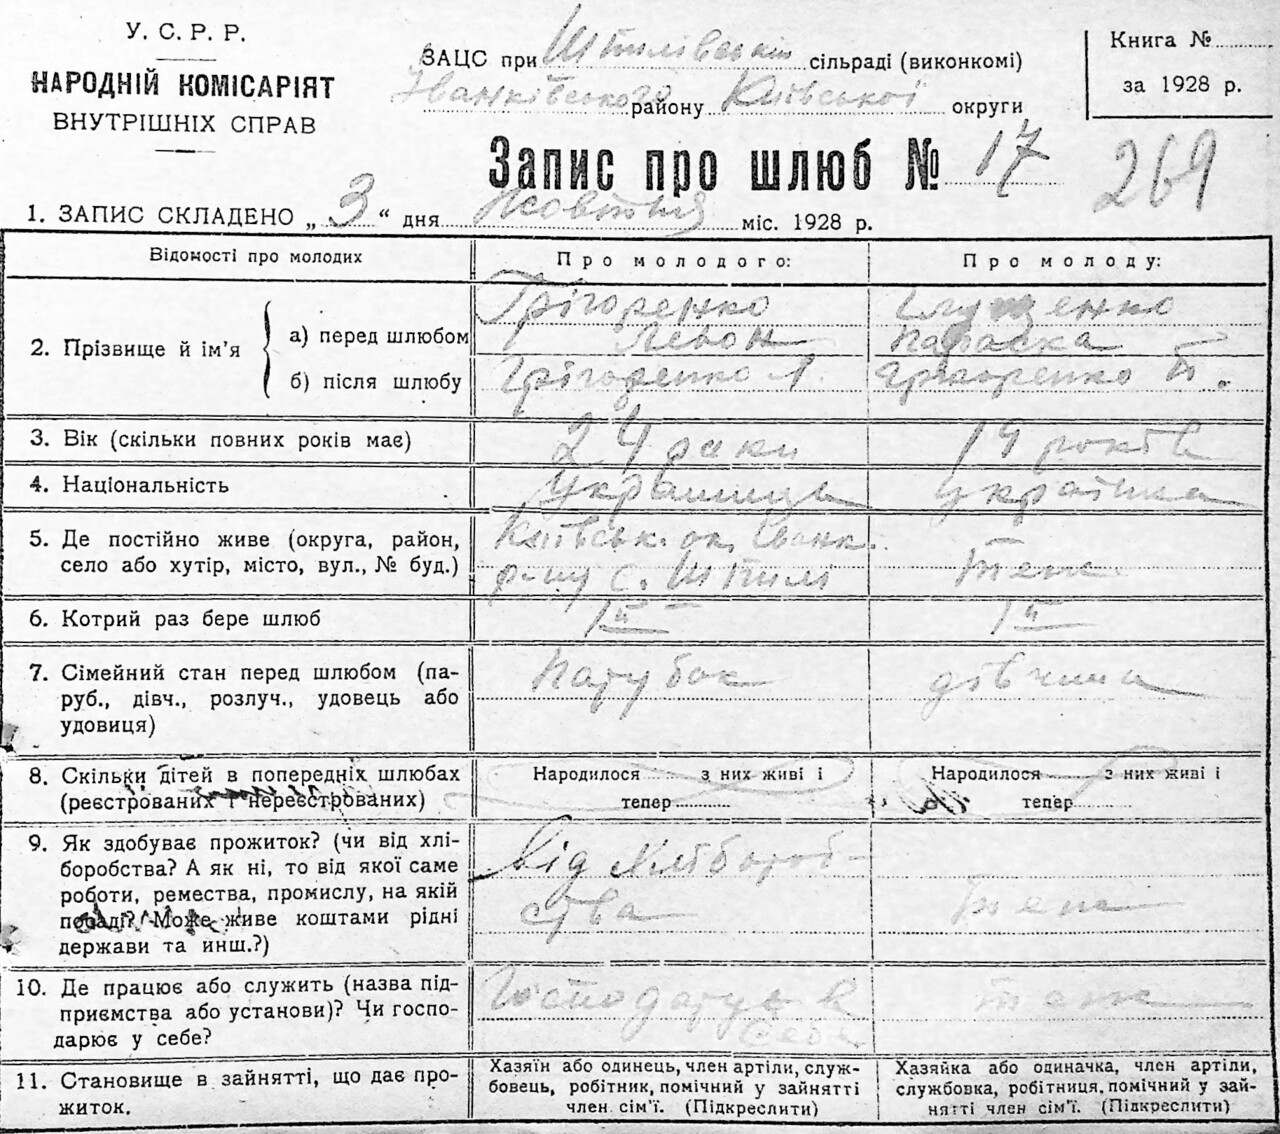 У. С. Р. Р.
НАРОДНІЙ КОМІСАРІЯТ
ВНУТРІШНІХ СПРАВ
ЗАЦС при Штилівській сільраді (виконкомі)
Іванківського району Київської округи
Книга №
за 1928 р.
Запис про шлюб № 17
269
1. ЗАПИС СКЛАДЕНО „ 3 “ дня Жовтня міс. 1928 р.
Відомості про молодих
Про молодого:
Про молоду:
2. Прізвище й ім’я
а) перед шлюбом
б) після шлюбу
Грігоренко
Левон
Грігоренко Л.
Параска
Грігоренко П.
3. Вік (скільки повних років має)
24 роки
19 років
4. Національність
Украинець
українка
5. Де постійно живе (округа, район,
село або хутір, місто, вул., № буд.)
Київськ. ок. Іванк.
р-ну с. Штилі
теж
6. Котрий раз бере шлюб
1й
1й
7. Сімейний стан перед шлюбом (па-
руб., дівч., розлуч., удовець або
удовиця)
парубок
дівчина
8. Скільки дітей в попередніх шлюбах
(реєстрованих і нереєстрованих)
Народилося з них живі і
тепер
Народилося з них живі і
тепер
9. Як здобуває прожиток? (чи від хлі-
боробства? А як ні, то від якої саме
роботи, ремества, промислу, на якій
посаді? Може живе коштами рідні
держави та инш.?)
Від хліборob-
ства
теж
10. Де працює або служить (назва під-
приємства або установи)? Чи госпо-
дарює у себе?
Господарює в
себе
теж
11. Становище в зайнятті, що дає про-
житок.
Хазяїн або одинець, член артілі, служ-
бовець, робітник, помічний у зайнятті
член сім’ї. (Підкреслити)
Хазяйка або одиначка, член артілі,
службовка, робітниця, помічний у зай-
нятті член сім’ї. (Підкреслити)